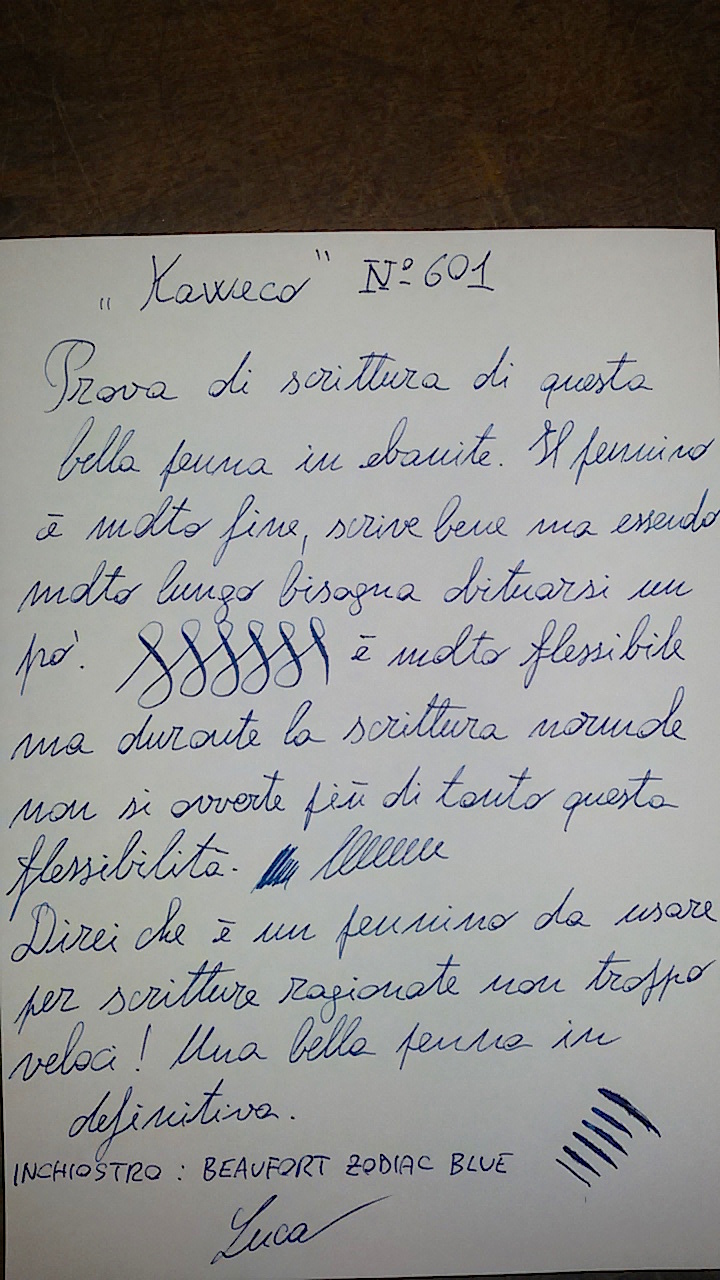 "Kaweco" Nº 601
Prova di scrittura di questa
bella penna in ebanite. Il pennino
è molto fine, scrive bene ma essendo
molto lungo bisogna abituarsi un
pò. è molto flessibile
ma durante la scrittura normale
non si avverte più di tanto questa
flessibilità.
Direi che è un pennino da usare
per scritture ragionate non troppo
veloci! Una bella penna in
definitiva.
INCHIOSTRO: BEAUFORT ZODIAC BLUE
Luca